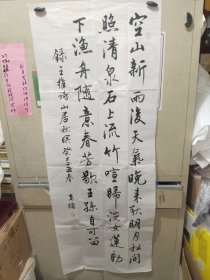 空山新雨後天氣晚來秋明月松間
照清泉石上流竹喧歸浣女蓮動
下漁舟隨意春芳歇王孫自可留
錄王維詩山居秋暝